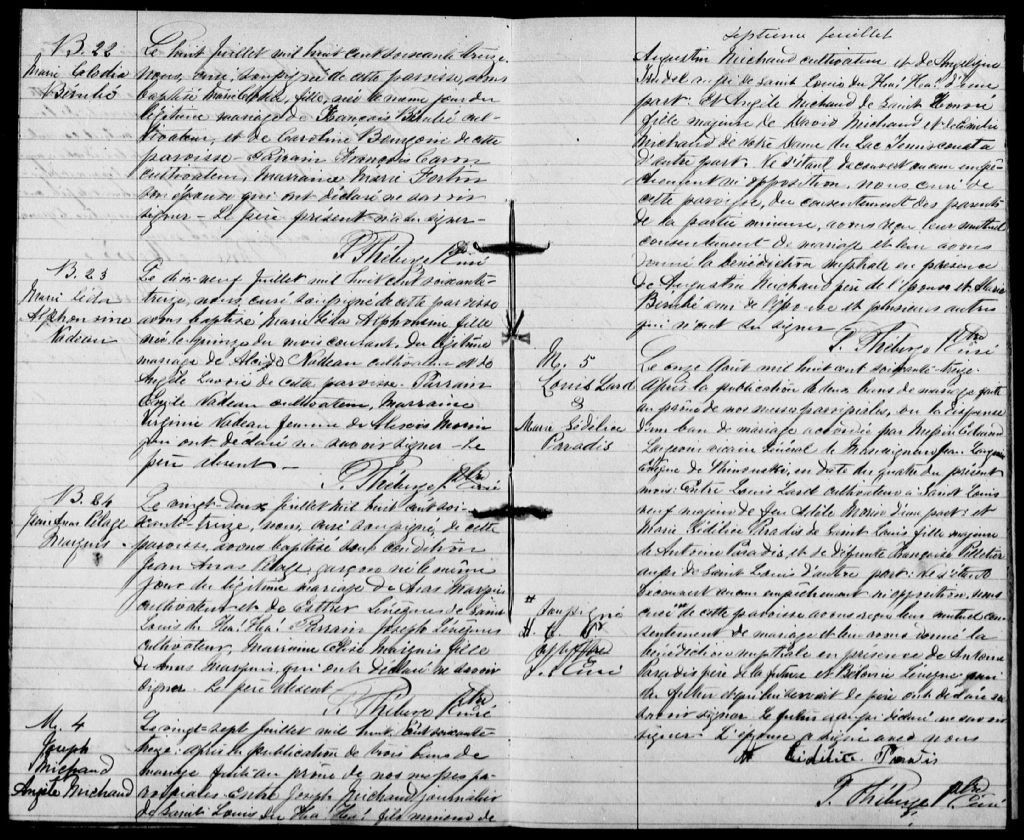 B. 22
Marie Elodia
Bérubé
Le huit Juillet mil huit cent soixante treize
nous, curé, soussigné de cette paroisse, avons
baptisé Marie Elodia, fille, née le même jour du
légitime mariage de François Bérubé cul-
tivateur, et de Caroline de cette
paroisse - Parrain François Caron
cultivateur, Marraine Marie Fortin
son épouse qui ont déclaré ne savoir
signer - Le père présent n'a su signer -
P. Théberge Ptre Curé
B. 23
Marie Léda
Alphonsine
Nadeau
Le dix-neuf Juillet mil huit cent soixante-
treize, nous, curé soussigné de cette paroisse
avons baptisé Marie Léda Alphonsine fille
née le quinze du mois courant, du légitime
mariage de Nadeau cultivateur et de
Angèle Lavoie de cette paroisse. Parrain
Nadeau cultivateur, Marraine
Virginie Nadeau femme de Morin
qui ont déclaré ne savoir signer - Le
père absent -
P. Théberge Ptre Curé
B. 24
Jean Anas Pélage
Marquis -
Le vingt-deux Juillet mil huit cent soi-
xante-treize, nous, curé soussigné, de cette
paroisse, avons baptisé sous condition
Jean Anas Pélage, garçon né le même
jour du légitime mariage de Anas Marquis
cultivateur et de Esther Lévêque de Saint
Louis du Ha! Ha! Parrain Joseph Lévêque
cultivateur, Marraine Marquis fille
de Anas Marquis, qui ont déclaré ne savoir
signer. Le père absent
P. Théberge Ptre Curé
M. 4
Joseph
Michaud
Angèle Michaud
Le vingt-sept Juillet mil huit cent soixante
treize: après la publication de trois bans de
mariage faite au prône de nos messes pa-
roissiales Entre Joseph Michaud journalier
de Saint Louis du Ha! Ha! fils mineur de
Septième feuillet
Augustin Michaud cultivateur et de Angélique
aussi de Saint Louis du Ha! Ha! d'une
part: Et Angèle Michaud de Saint Honoré
fille majeure de David Michaud et de
Michaud de Notre Dame du Lac Témiscouata
d'autre part. Ne s'étant découvert aucun empê-
chement ni opposition, nous curé de
cette paroisse, du consentement des parents
de la partie mineure, avons reçu leur mutuel
consentement de mariage et leur avons
donné la bénédiction nuptiale en présence
de Augustin Michaud père de l'époux et
Bérubé ami de l'épouse et plusieurs autres
qui n'ont su signer
P. Théberge Ptre Curé
M. 5
Louis Lard
&
Marie Fidélice
Paradis
Le onze Août mil huit cent soixante-treize.
Après la publication de deux bans de mariage faite
au prône de nos messes paroissiales, vu la dispense
d'un ban de mariage accordée par Messire Edmond
Langevin vicaire Général de Monseigneur Jean Langevin
Evêque de Rimouski, en date du quatre du présent
mois. Entre Louis Lard cultivateur de Saint Louis
veuf majeur de feu Morin d'une part: et
Marie Fidélice Paradis de Saint Louis fille majeure
de Antoine Paradis, et de défunte Françoise Pelletier
aussi de Saint Louis d'autre part. Ne s'étant
découvert aucun empêchement ni opposition, nous
curé # de cette paroisse avons reçu leur mutuel con-
sentement de mariage et leur avons donné la
bénédiction nuptiale en présence de Antoine
Paradis père de la future et Lévêque ami
du futur et qui lui servait de père ont déclaré ne
savoir signer. Le futur aussi déclaré ne savoir
signer. L'épouse a signé avec nous
# soussigné
J. Curé
Fidélice Paradis
P. Théberge Ptre Curé